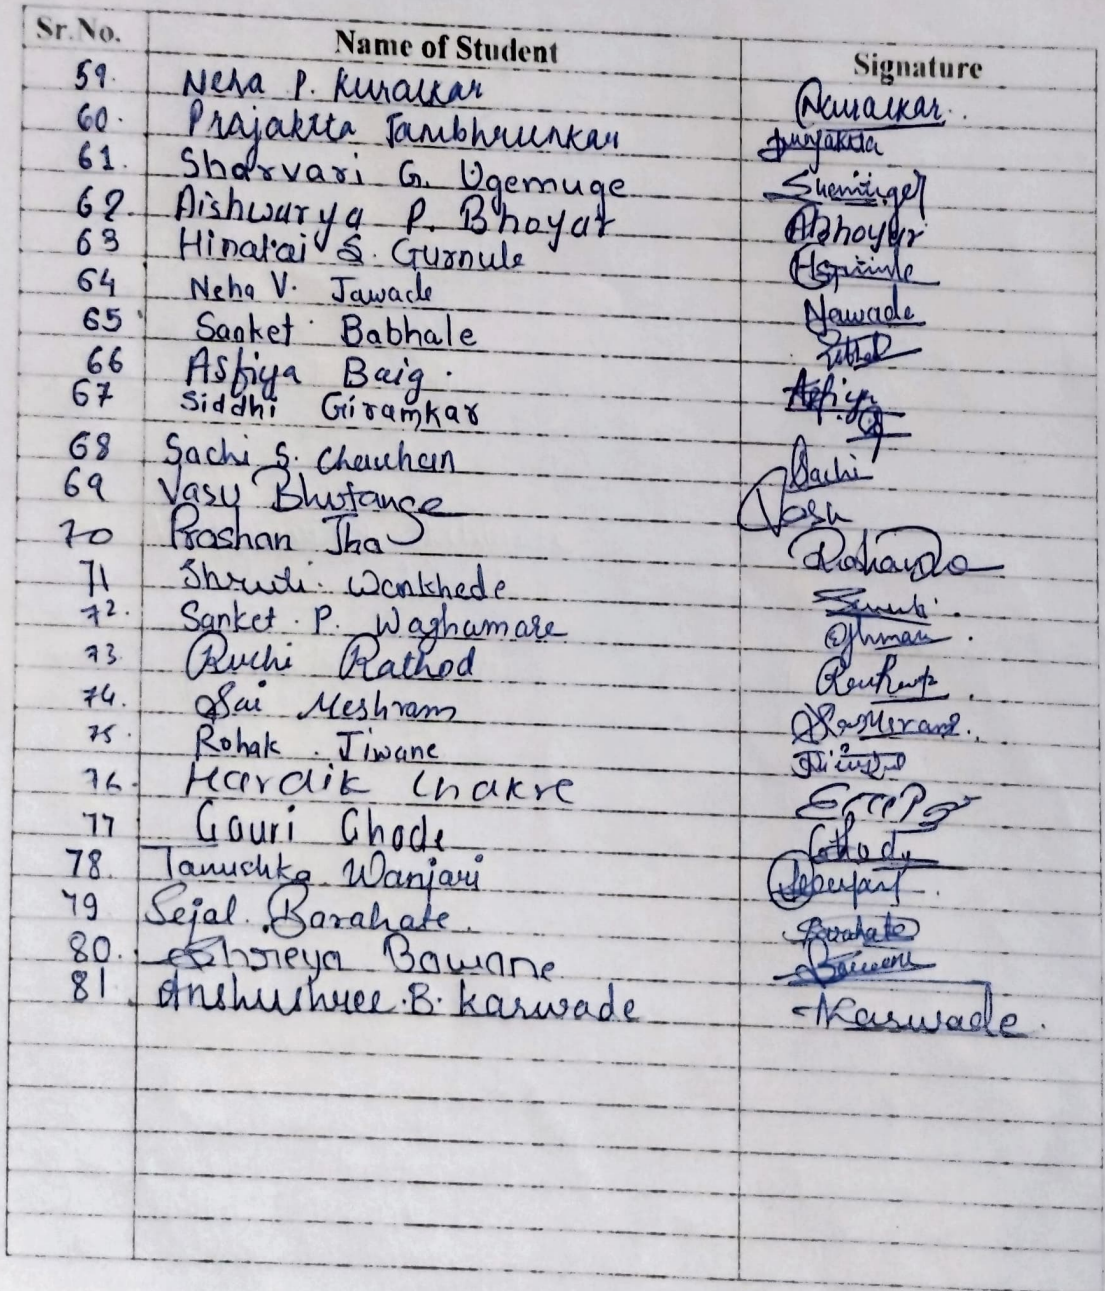 Sr.No. Name of Student Signature
59. Neha P. Kuralkar Nkuralkar.
60. Prajakta Jambhrunkar Prajakta
61. Sharvari G. Ugemuge
62. Aishwarya P. Bhoyar ABhoyar
63 Hinatai S. Gurnule
64 Neha V. Jawade NJawade
65 Sanket Babhale
66 Asfiya Baig. Asfiya
67 Siddhi Giramkar
68 Sachi S. Chauhan Sachi
69 Vasu Bhutange Vasu
70 Roshan Jha RoshanJha
71 Shruti Wankhede
72. Sanket. P. Waghamare
73 Ruchi Rathod
74. Sai Meshram
75. Rohak Jiwane
76. Hardik Chakre
77 Gauri Ghode Ghode
78. Tanushka Wanjari
79 Sejal Barahate. Barahate
80. Shreya Bawane Bawane
81 Anshushree.B. Karwade Karwade.